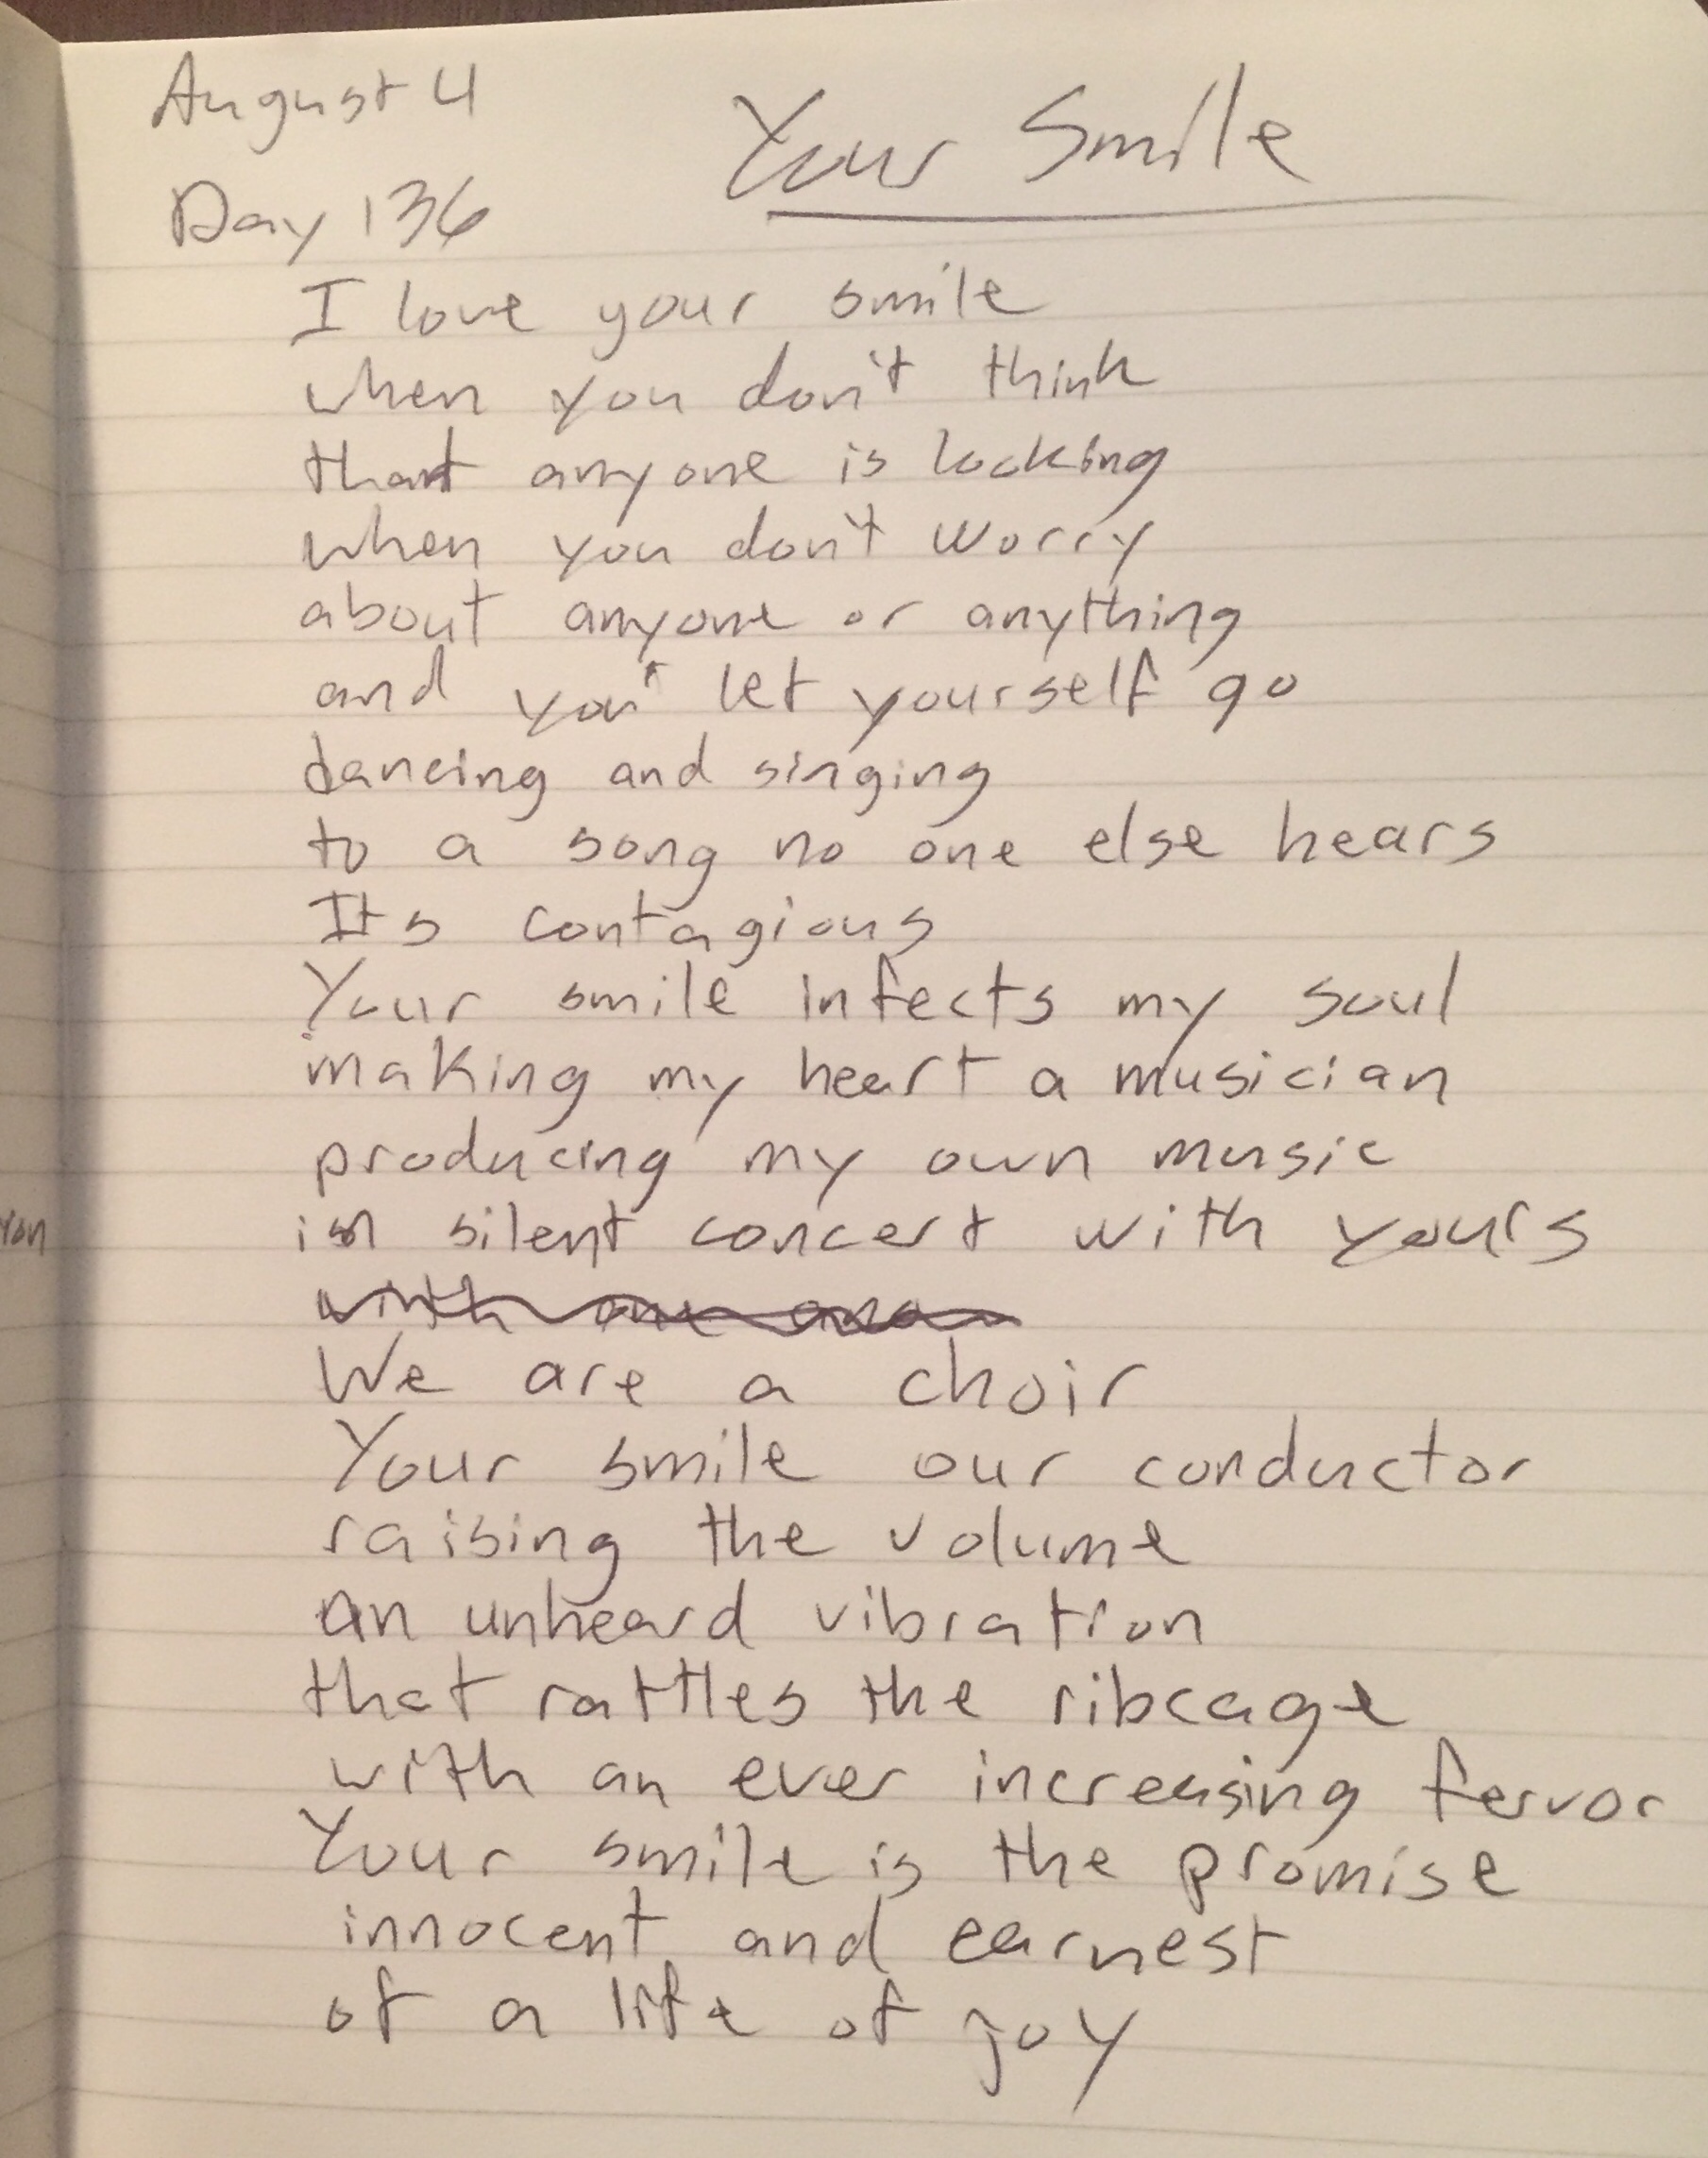 August 4
Your Smile
Day 136
I love your smile
when you don't think
that anyone is looking
when you don't worry
about anyone or anything
and you let yourself go
dancing and singing
to a song no one else hears
Its contagious
Your smile infects my soul
making my heart a musician
producing my own music
in silent concert with yours
with one ano
We are a choir
Your smile our conductor
raising the volume
an unheard vibration
that rattles the ribcage
with an ever increasing fervor
Your smile is the promise
innocent and earnest
of a life of joy